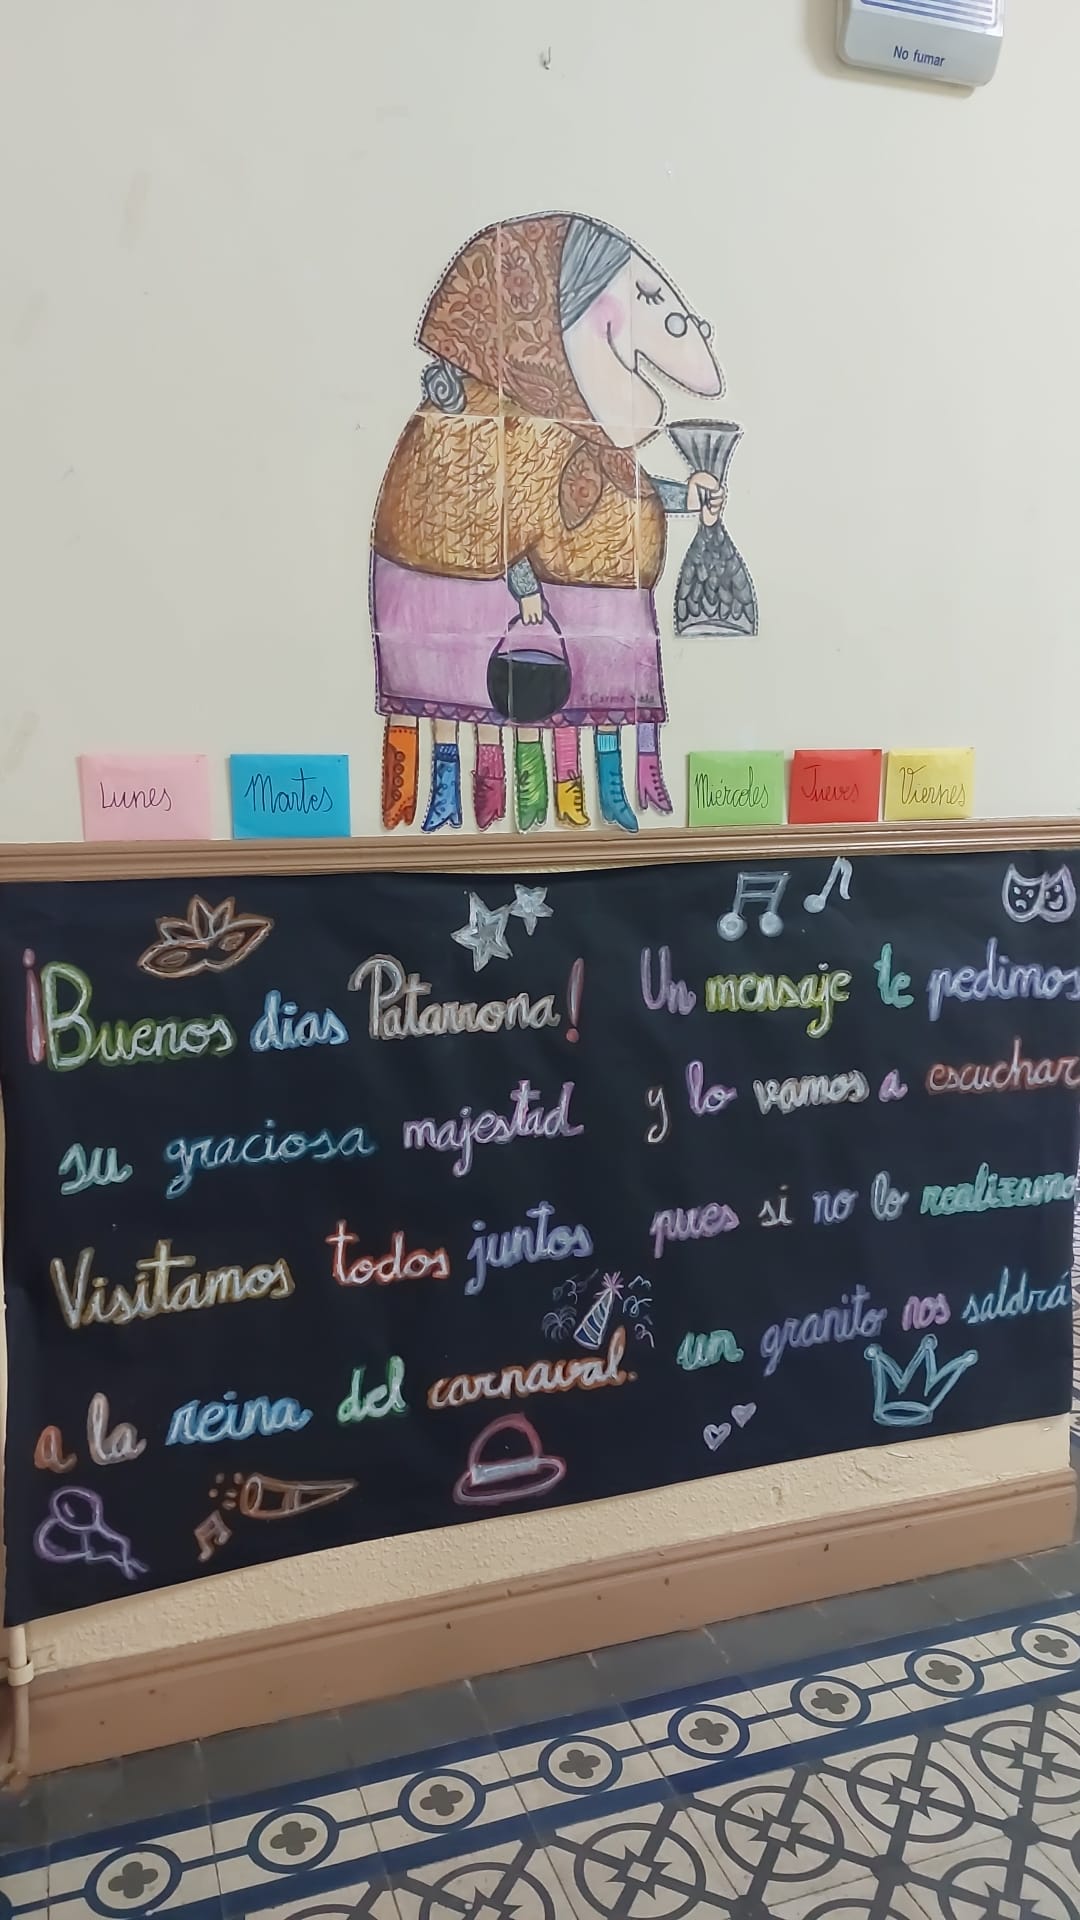 No fumar
© Carme Solé
Lunes
Martes
Miércoles
Jueves
Viernes
¡Buenos dias Patarrona!
su graciosa majestad
Visitamos todos juntos
a la reina del carnaval.
Un mensaje te pedimos
y lo vamos a escuchar
pues si no lo realizamo
un granito nos saldrá